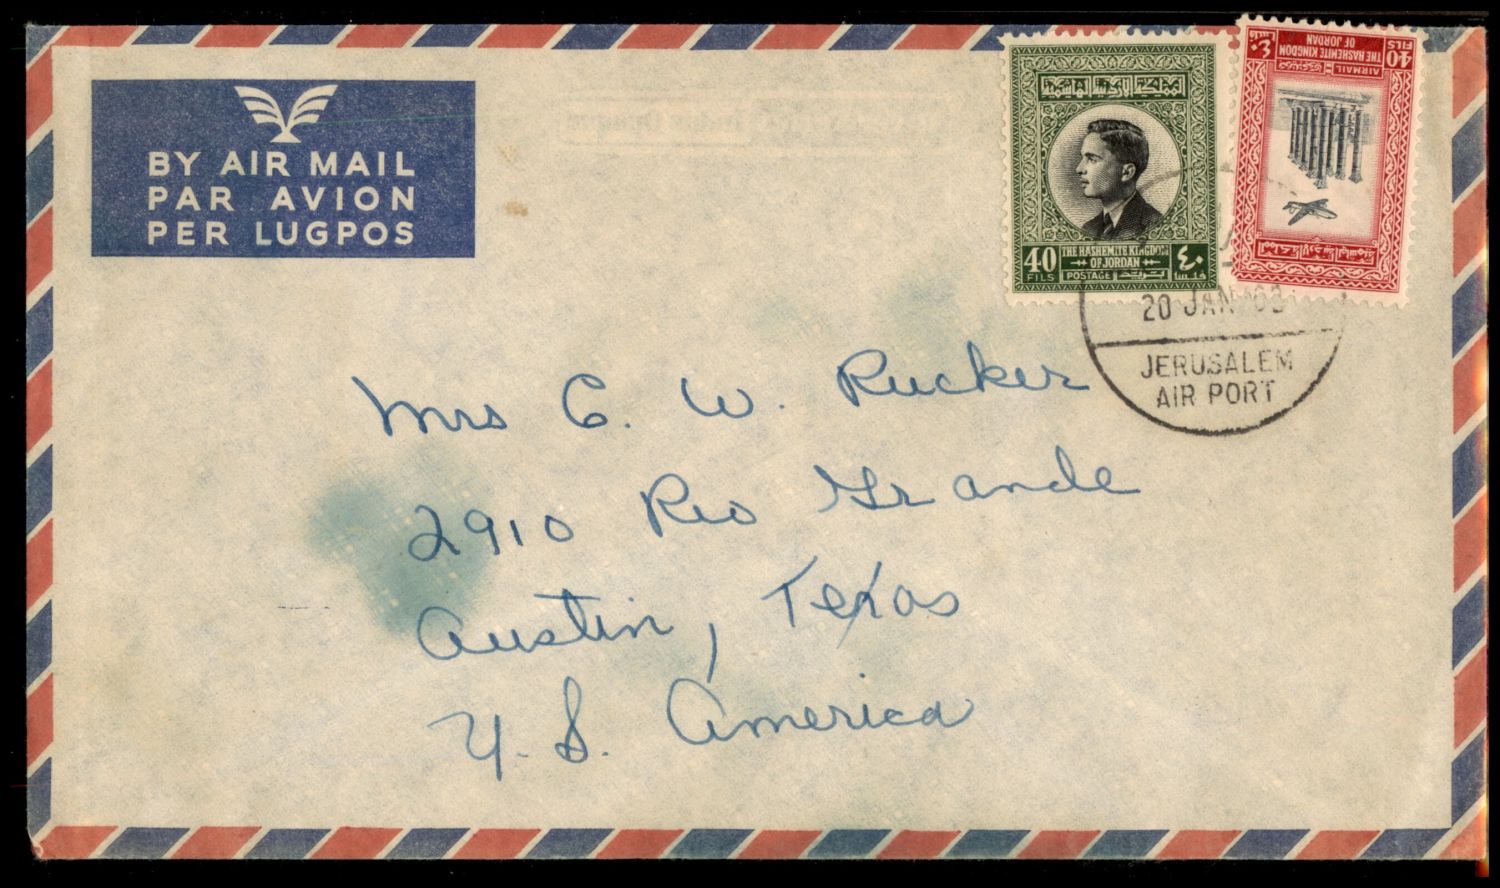 BY AIR MAIL
PAR AVION
PER LUGPOS
المملكة الأردنية الهاشمية
40 FILS
THE HASHEMITE KINGDOM
OF JORDAN
POSTAGE بريد
٤٠ فلسا
40 FILS
THE HASHEMITE KINGDOM
OF JORDAN
٤٠ فلسا
AIRMAIL
المملكة الأردنية الهاشمية
20 JAN 63
JERUSALEM
AIR PORT
Mrs C. W. Rucker
2910 Rio Grande
Austin, Texas
U. S. America